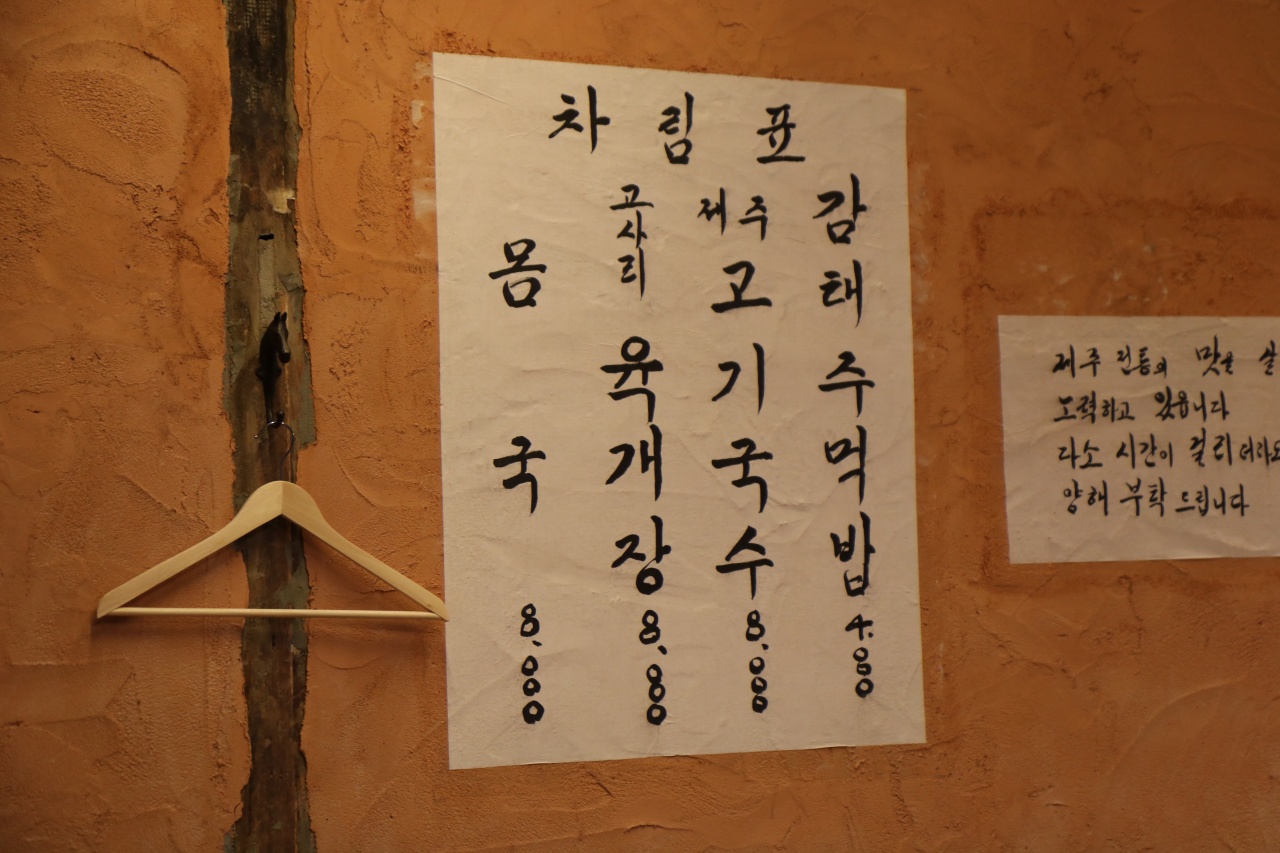 차림표
몸국 8,000
고사리 육개장 8,000
제주 고기국수 8,000
감태주먹밥 4,000
제주 전통의 맛을 살
노력하고 있읍니다
다소 시간이 걸리더라도
양해 부탁 드립니다